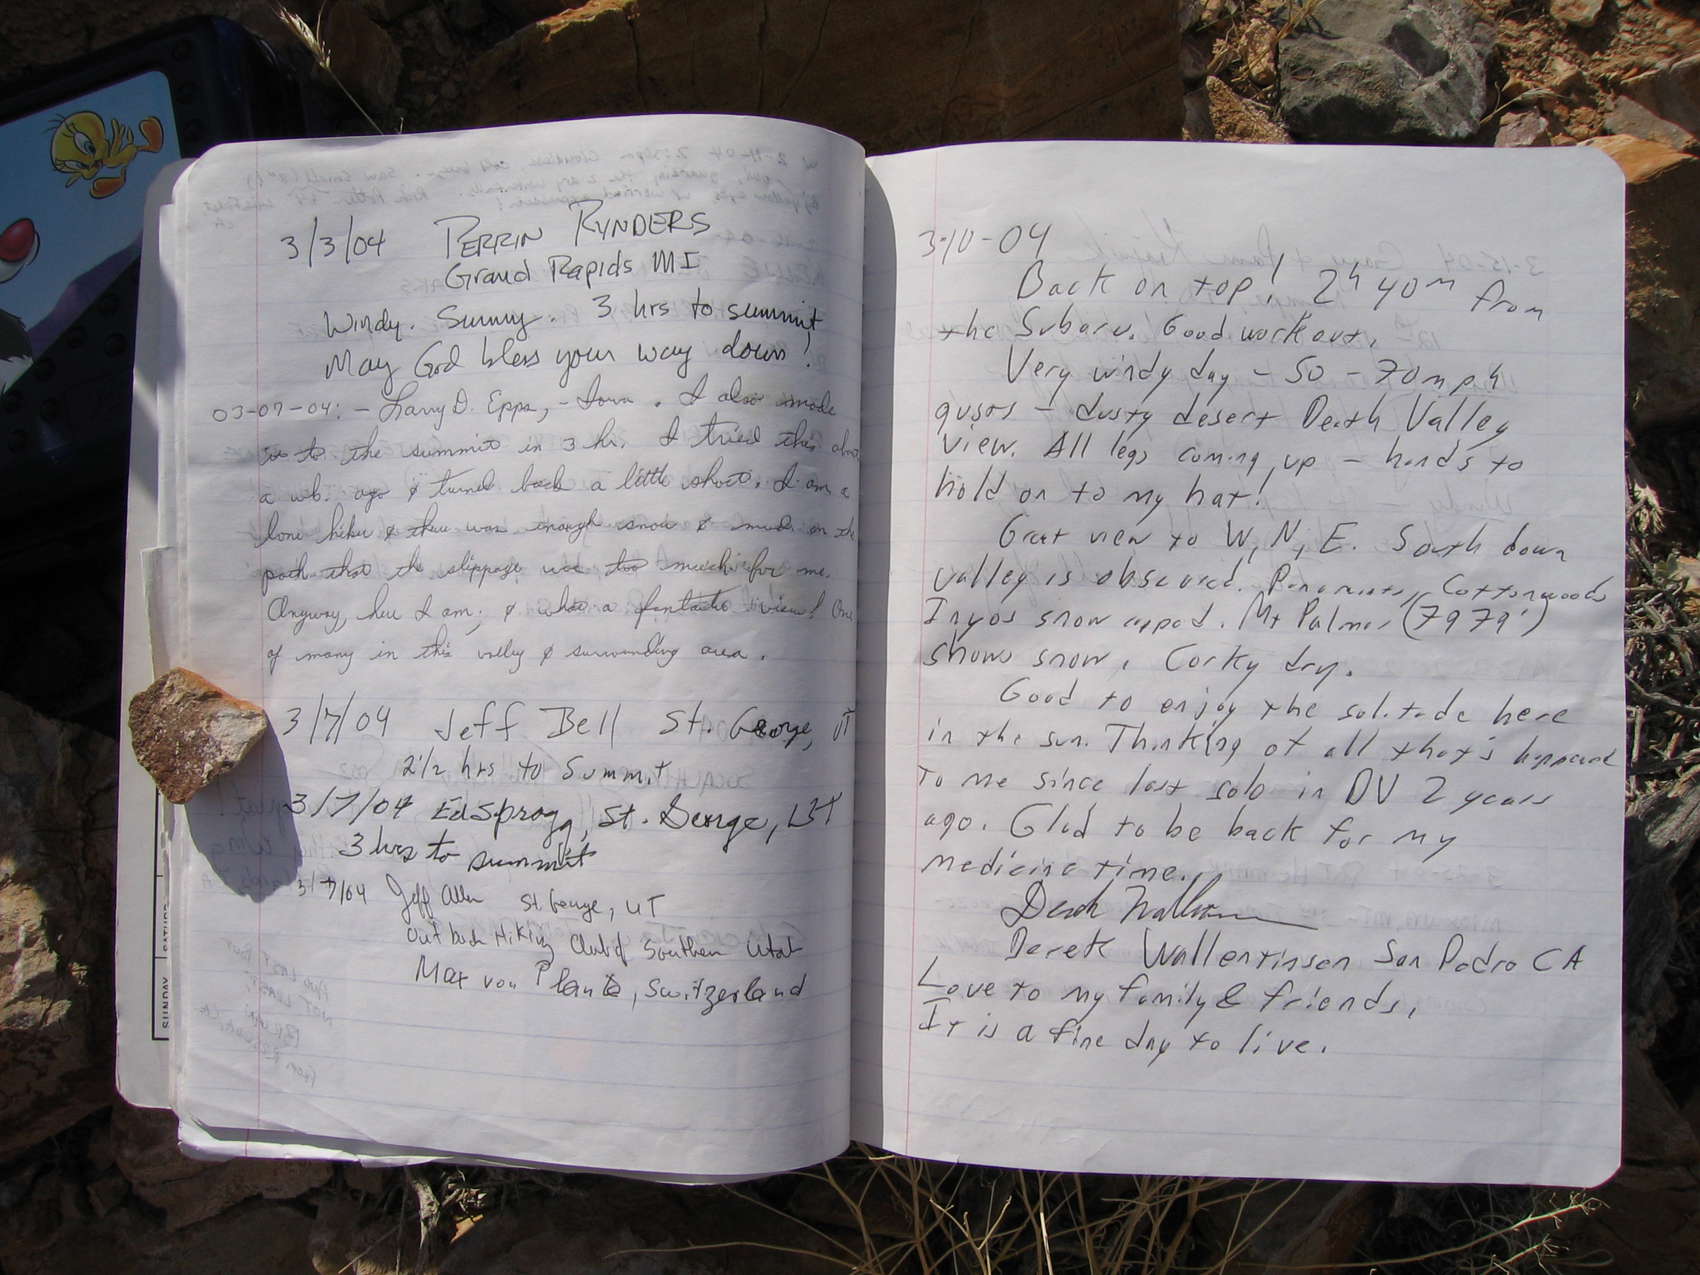 3/3/04 PERRIN RYNDERS
Grand Rapids MI
Windy. Sunny. 3 hrs to summit
May God bless your way down!
03-07-04: - Larry D. Epps, - Iowa. I also made
it to the summit in 3 hr. I tried this about
a wk. ago & turned back a little short. I am a
lone hiker & there was enough snow & mud on the
path that the slippage was too much for me.
Anyway, here I am; & what a fantastic view! One
of many in this valley & surrounding area.
3/7/04 Jeff Bell St. George, UT
2 1/2 hrs to Summit
3/7/04 Ed Sprogg, St. George, UT
3 hrs to summit
3/7/04 Jeff Allen St George, UT
Outback Hiking Club of Southern Utah
Max von Planta, Switzerland
SUNDAY
3-10-04
Back on top! 2h 40m from
the Subaru. Good workout.
Very windy day - 50 - 70 mph
gusts - dusty desert Death Valley
view. All legs coming up - hands to
hold on to my hat!
Great view to W, N, E. South down
valley is obscured. Panamints, Cottonwoods
Inyos snow capped. Mt Palmer (7979')
shows snow. Corky dry.
Good to enjoy the solitude here
in the sun. Thinking of all that's happened
to me since last solo in DV 2 years
ago. Glad to be back for my
medicine time.
Derek Wallentinsen San Pedro CA
Love to my family & friends,
It is a fine day to live.